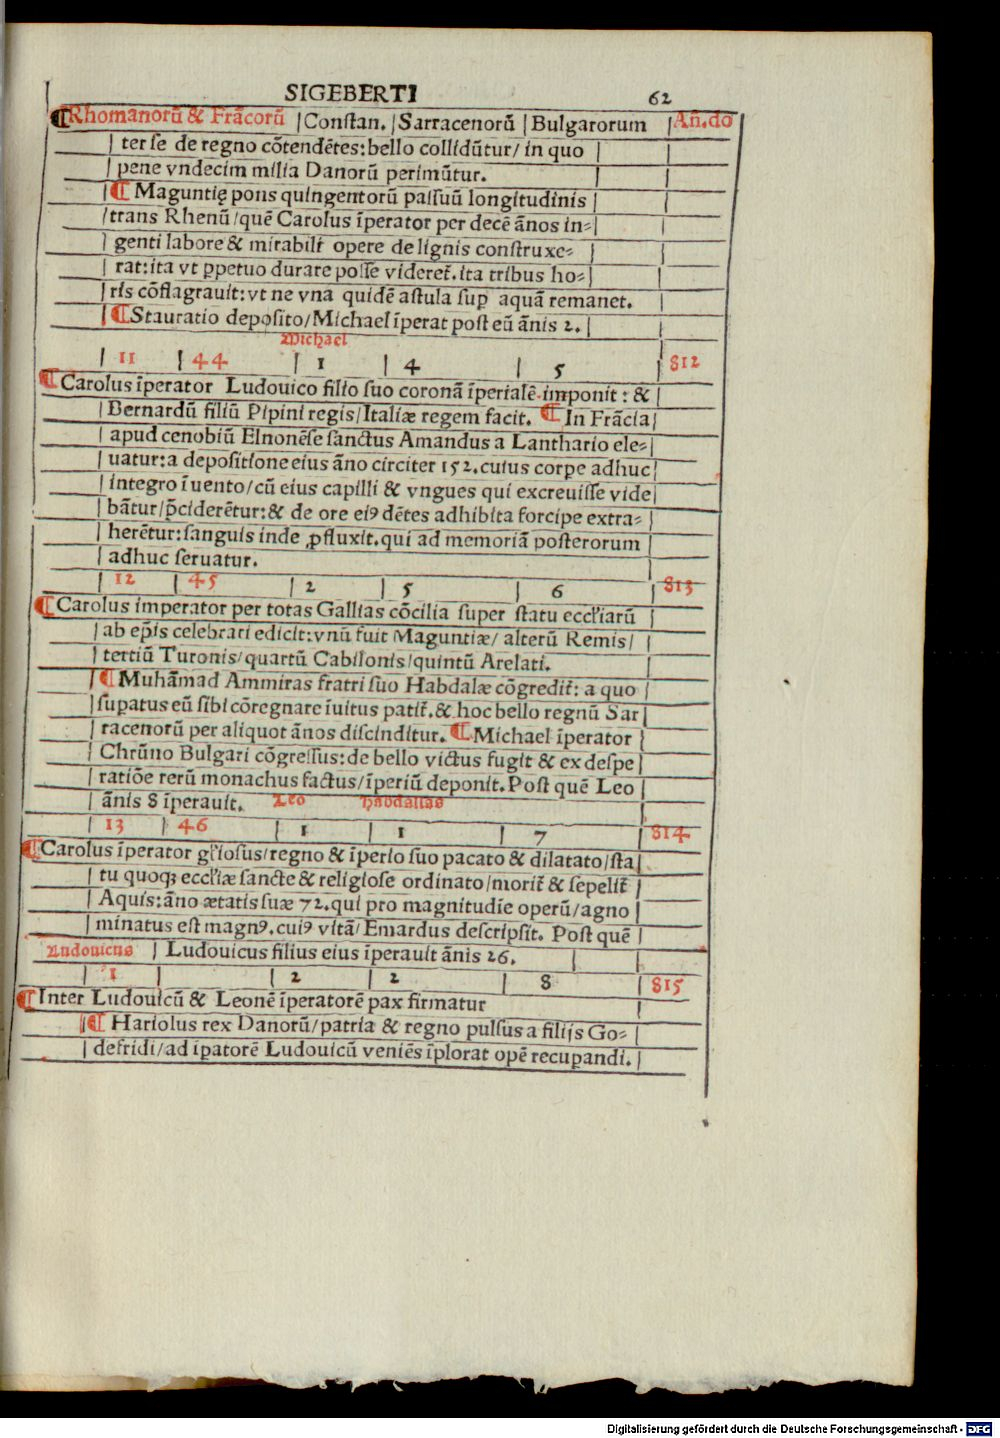 SIGEBERTI 62
¶Rhomanorū & Frācorū |Constan.|Sarracenorū |Bulgarorum |Añ.do
ter se de regno cōtendētes: bello collidūtur/ in quo
pene vndecim milia Danorū perimūtur.
¶ Maguntię pons quingentorū passuū longitudinis
trans Rhenū/quē Carolus īperator per decē ānos in⸗
genti labore & mirabili opere de lignis construxe⸗
rat: ita vt ꝑpetuo durare posse videreť. ita tribus ho⸗
ris cōflagrauit: vt ne vna quidē astula suꝑ aquā remanet.
¶Stauratio deposito/Michael īperat post eū ānis 2.
Michael
11 | 44 | 1 | 4 | 5 | 812
¶Carolus īperator Ludouico filio suo coronā īperialē imponit: &
Bernardū filiū Pipini regis/Italiæ regem facit. ¶ In Frācia
apud cenobiū Elnonēse sanctus Amandus a Lanthario ele⸗
uatur: a depositione eius āno circiter 152. cuius corpe adhuc
integro īuento/cū eius capilli & vngues qui excreuisse vide
bātur/p̄ciderētur: & de ore eiꝰ dētes adhibita forcipe extra⸗
herētur: sanguis inde ꝓfluxit. qui ad memoriā posterorum
adhuc seruatur.
12 | 45 | 2 | 5 | 6 | 813
¶Carolus imperator per totas Gallias cōcilia super statu eccl'iarū
ab ep̄is celebrari edicit: vnū fuit Maguntiæ/ alterū Remis/
tertiū Turonis/quartū Cabilonis/quintū Arelati.
¶Muhāmad Ammiras fratri suo Habdalæ cōgrediť: a quo
suꝑatus eū sibi cōregnare īuitus patiť. & hoc bello regnū Sar
racenorū per aliquot ānos discinditur. ¶Michael īperator
Chrūno Bulgari cōgressus: de bello victus fugit & ex despe
ratiōe rerū monachus factus/īperiū deponit. Post quē Leo
ānis 8 īperauit. Leo Habdallas
13 | 46 | 1 | 1 | 7 | 814
¶Carolus īperator gl'iosus/regno & īperio suo pacato & dilatato/sta
tu quoqꝫ eccl'iæ sancte & religiose ordinato/moriť & sepeliť
Aquis: āno ætatis suæ 72. qui pro magnitudīe operū/agno
minatus est magnꝰ. cuiꝰ vitā/Emardus descripsit. Post quē
Ludouicus | Ludouicus filius eius īperauit ānis 26.
1 | 2 | 2 | 8 | 815
¶Inter Ludouicū & Leonē īperatorē pax firmatur
¶ Hariolus rex Danorū/patria & regno pulsus a filijs Go⸗
defridi/ad īꝑatorē Ludouicū veniēs īplorat opē recuꝑandi.
Digitalisierung gefördert durch die Deutsche Forschungsgemeinschaft - DFG